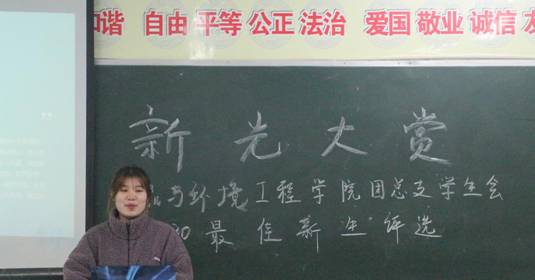 和谐 自由 平等 公正 法治 爱国 敬业 诚信 友
新光大赏
与环境工程学院团总支学生会
最佳新生"评选